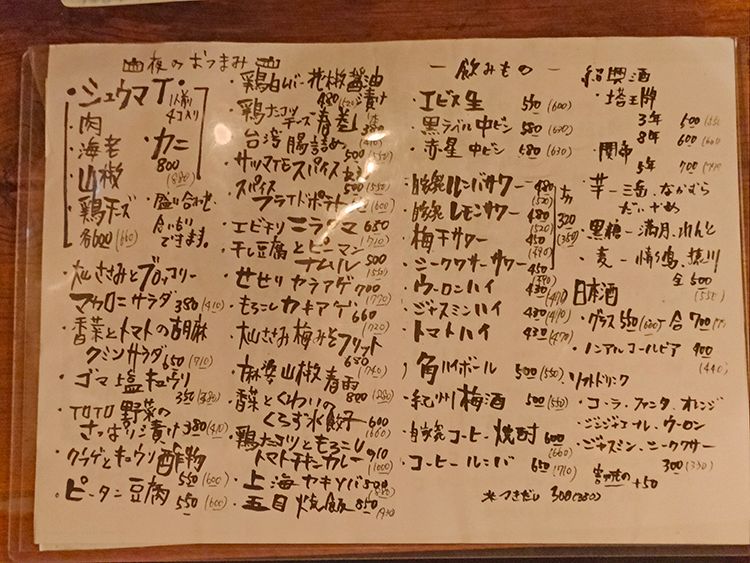 夜のおつまみ
・シュウマイ・
1人前
4コ入り
・肉
・海老
・山椒
・鶏チーズ
各600(660)
・カニ
800
(880)
・盛り合わせ
合いもり
できます。
・大山ささみとブロッコリー
マカロニサラダ 380(410)
・香菜とトマトの胡麻
クミンサラダ 650(710)
・ゴマ塩キュウリ
350(380)
・トロトロ野菜の
さっぱり漬け 380(410)
・クラゲとキュウリ酢物
550(600)
・ピータン豆腐 550(600)
・鶏白レバー花椒醤油
漬け
480(520)
・鶏ナンコツ
チーズ春巻
380
(410)
・台湾腸詰め 500(550)
・サツマイモスパイス
・スパイス
フライドポテト
500(550)
(600)
・エビチリニラソース 650
(710)
・干し豆腐とピーマン
ナムル 500
(550)
・せせりカラアゲ 700
(770)
・もろこしカキアゲ
660
(720)
・大山ささみ梅みそフリット
680
(740)
・麻婆山椒春雨
800(880)
・香菜とくわいの
くろず水餃子 600
(660)
・鶏ナンコツともろこし
トマトチキンカレー 910
(1000)
・上海ヤキソバ 800
(880)
・五目焼飯 850
(930)
ー飲みものー
・エビス生 550(600)
・黒ラベル中ビン 580(630)
・赤星中ビン 580(630)
・自家製ルンバサワー 480
(520)
・自家製レモンサワー 480
(520)
・梅干サワー 450
(490)
・シークワーサーサワー 450
(490)
ナカ
320
(350)
・ウーロンハイ 430(470)
・ジャスミンハイ 430(470)
・トマトハイ 430(470)
・角ハイボール 500(550)
・紀州梅酒 500(550)
・自家製コーヒー焼酎 600
(660)
・コーヒールンバ 650(710)
※つきだし 300(330)
・紹興酒
・塔王牌
3年 500(550)
8年 600(660)
・関帝
5年 700(770)
・芋ー三岳、ながむら
だいやめ
・黒糖ー満月、れんと
・麦ー情け嶋、
全500
(550)
日本酒
・グラス 550(600) 合 700(770)
・ノンアルコールビア 400
(440)
ソフトドリンク
・コーラ、ファンタ、オレンジ
・ジンジャエール、ウーロン
・ジャスミン、シークワサー
300(330)
+50